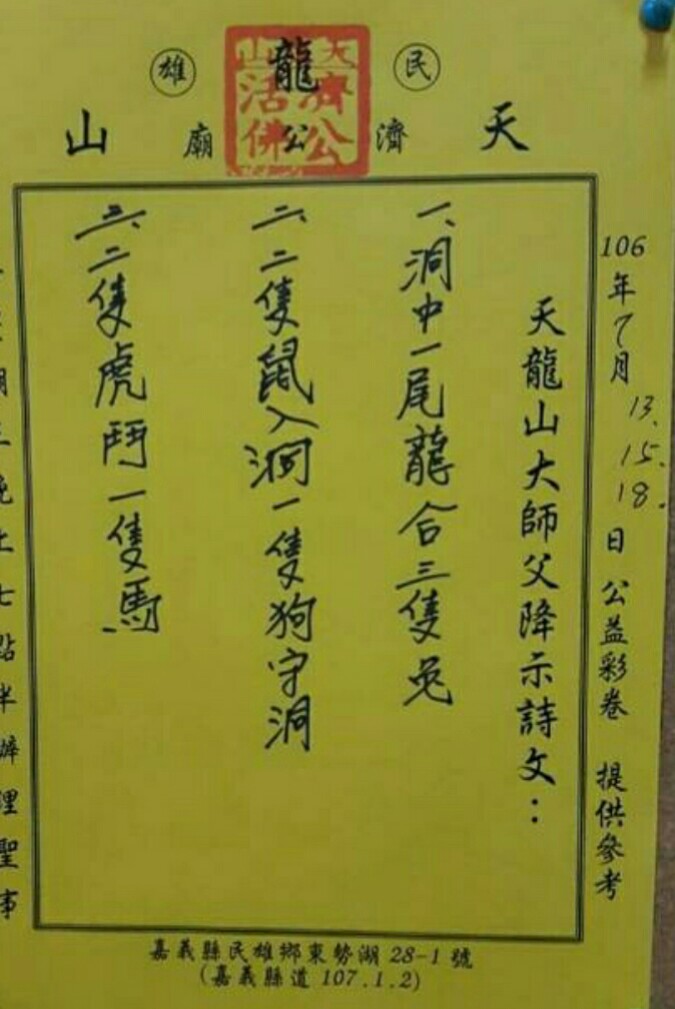 民雄
天龍山
濟公廟
天山濟公活佛
106年7月13.15.18.日公益彩卷 提供參考
天龍山大師父降示詩文：
一、洞中一尾龍合三隻兔
二、二隻鼠入洞一隻狗守洞
三、二隻虎鬥一隻馬
晚上七點半辦理聖事
嘉義縣民雄鄉東勢湖 28-1 號
(嘉義縣道 107.1.2)